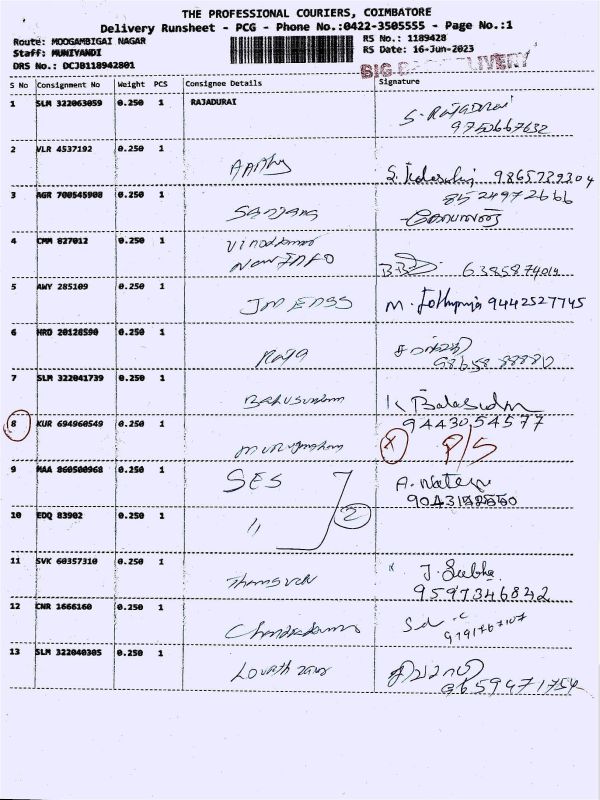 THE PROFESSIONAL COURIERS, COIMBATORE
Delivery Runsheet - PCG - Phone No.:0422-3505555 - Page No.:1
Route: MOOGAMBIGAI NAGAR RS No.: 1189428
Staff: MUNIYANDI RS Date: 16-Jun-2023
DRS No.: DCJB118942801
BIG DELIVERY
S No Consignment No Weight PCS Consignee Details Signature
1 SLM 322063059 0.250 1 RAJADURAI S. RAJADURAI
9750667632
2 VLR 4537192 0.250 1 9865739304
3 AGR 700545908 0.250 1 Sanjang 8524972666
4 CMM 827012 0.250 1 Vinodkumar
New INFO 6385874014
5 AWY 285109 0.250 1 JM ENGG M. 9442527745
6 HRD 20128590 0.250 1 Raja
98658 88880
7 SLM 322041739 0.250 1 Balasundam K Balasudm
8 KUR 694960549 0.250 1 9443054577
X P/S
9 MAA 860500968 0.250 1 SES A. Natesn
10 EDQ 83902 0.250 1 " 2
11 SVK 60357310 0.250 1 x J. Subha
9597346842
12 CNR 1666160 0.250 1 Sd. c
9791767107
13 SLM 322040305 0.250 1
8659471754